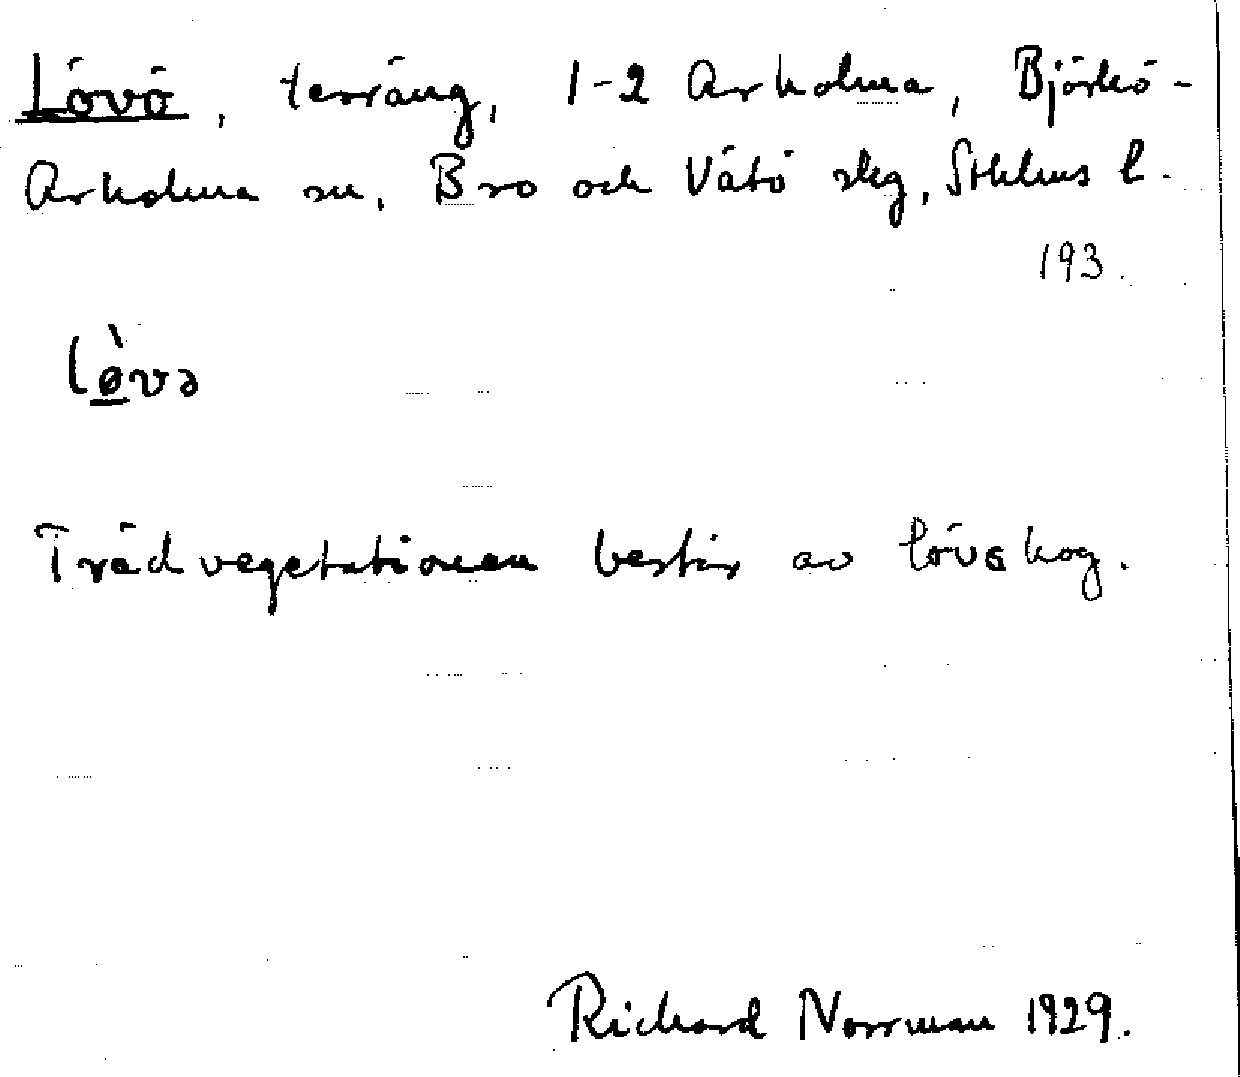 Lövö, terräng, 1-2 Arholma, Björkö-
Arholma sn, Bro och Vätö skg, Sthlms l.
193.
lø̀və
Trädvegetationen består av lövskog.
Richard Norrman 1929.